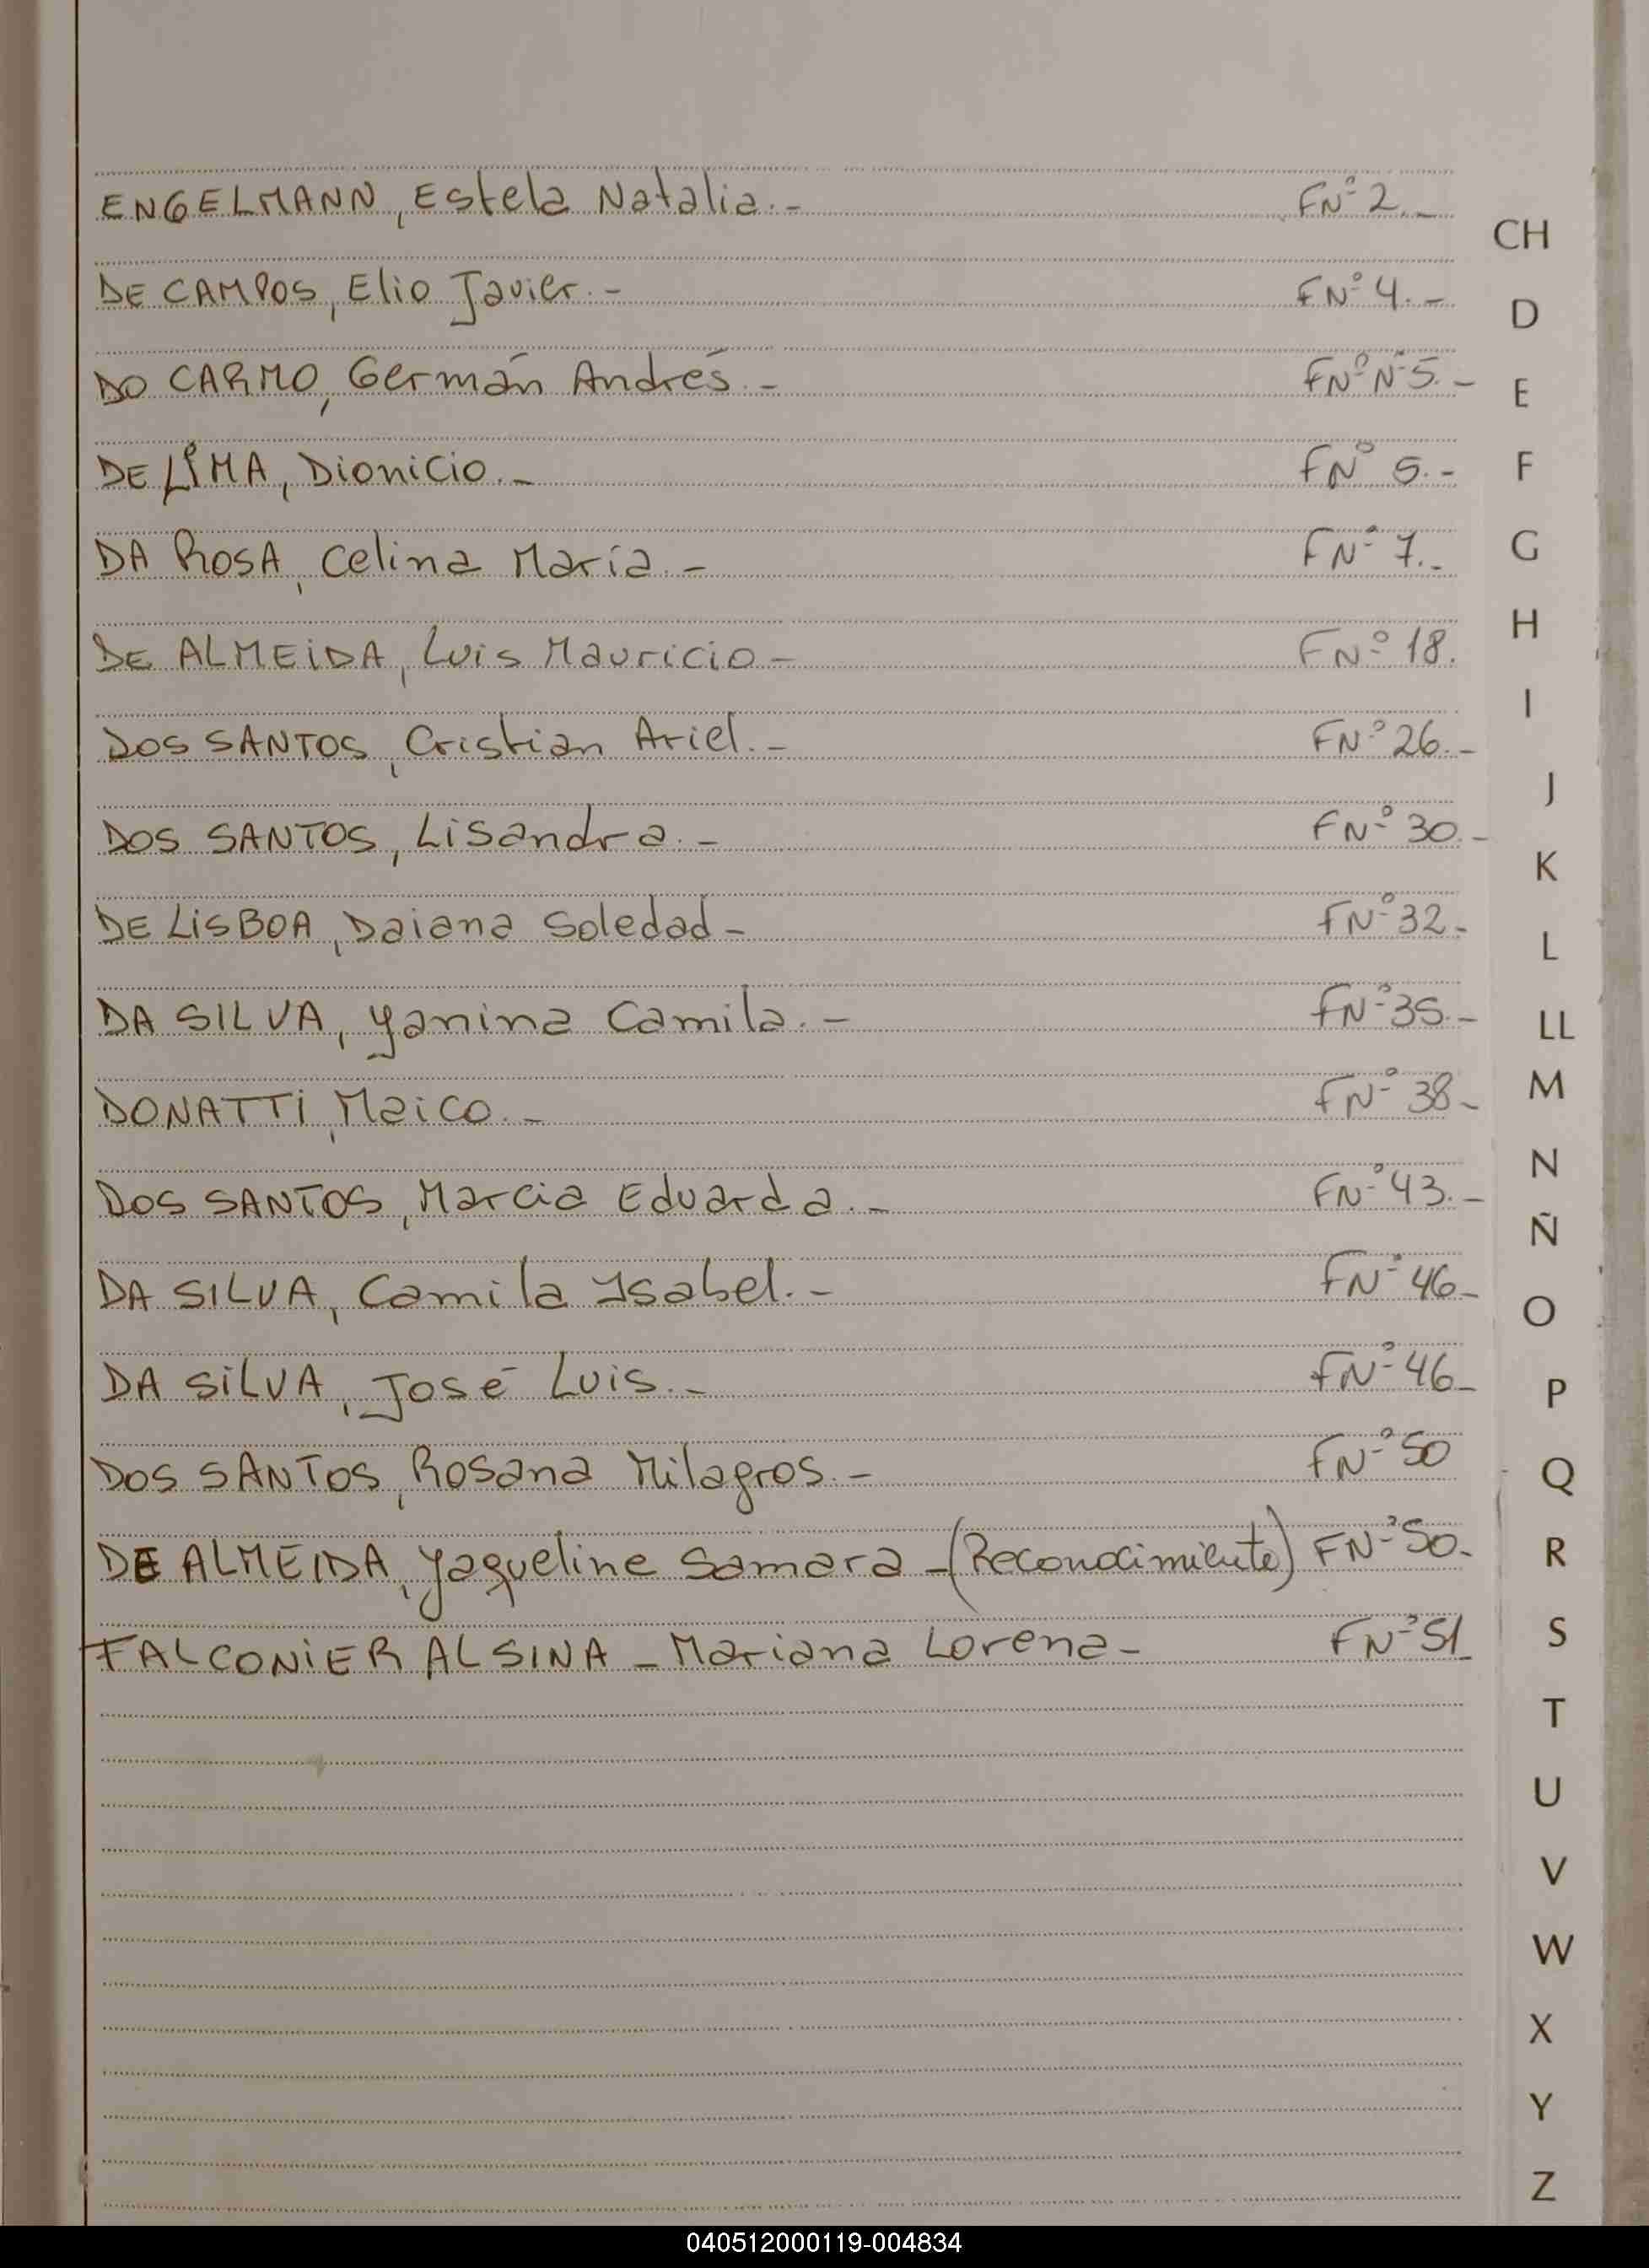 ENGELMANN, Estela Natalia.- FNº 2.-
CH
DE CAMPOS, Elio Javier.- FNº 4.-
D
DO CARMO, Germán Andrés.- FNº Nº 5.-
E
DE LIMA, Dionicio.- FNº 5.-
F
DA ROSA, Celina María.- FNº 7.-
G
H
DE ALMEIDA, Luis Mauricio- FNº 18.
I
DOS SANTOS, Cristian Ariel.- FNº 26.-
J
DOS SANTOS, Lisandra.- FNº 30.-
K
DE LISBOA, Daiana Soledad- FNº 32-
L
DA SILVA, Yanina Camila.- FNº 35.-
LL
DONATTI, Maico.- FNº 38-
M
N
DOS SANTOS, Marcia Eduarda.- FNº 43.-
Ñ
DA SILVA, Camila Ysabel.- FNº 46-
O
DA SILVA, José Luis.- FNº 46-
P
DOS SANTOS, Rosana Milagros.- FNº 50
Q
DE ALMEIDA, Yaqueline Samara-(Reconocimiento) FNº 50-
R
FALCONIER ALSINA - Mariana Lorena- FNº 51
S
T
U
V
W
X
Y
Z
040512000119-004834